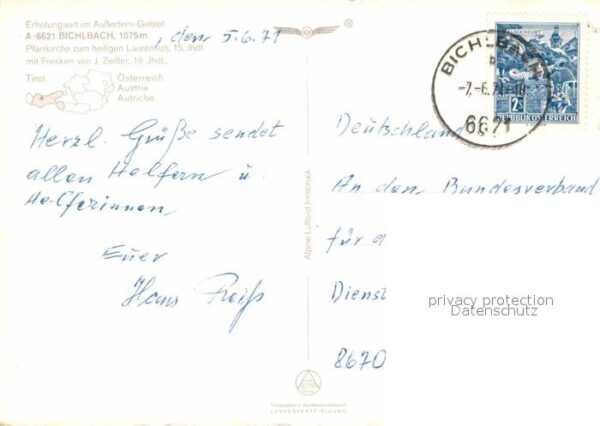 Erholungsort im Außerfern-Gebiet
A-6621 BICHLBACH, 1075m
Pfarrkirche zum heiligen Laurentius, 15. Jhdt.
mit Fresken von J. Zeiller, 18. Jhdt.
Tirol
Österreich
Austria
Autriche
, den 5.6.71
Herzl. Grüße sendet
allen Helfern u.
Helferinnen
Euer
Hans
Alpine Luftbild Innsbruck
BICHLBACH
-7.-6.71-18
6621
2S
REPUBLIK ÖSTERREICH
Deutschland
An den Bundesverband
für d
Dienst
8670
privacy protection
Datenschutz
LANDESVERTEIDIGUNG